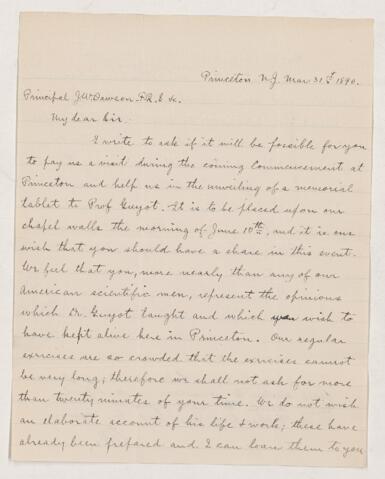 Princeton N.J. Mar 31st 1890.
Principal J Wm Dawson. F.R.S &c.
My dear Sir.
I write to ask if it will be possible for you
to pay us a visit during the coming Commencement at
Princeton and help us in the unveiling of a memorial
tablet to Prof Guyot. It is to be placed upon our
chapel walls the morning of June 10th, and it is our
wish that you should have a share in this event.
We feel that you, more nearly than any of our
American scientific men, represent the opinions
which Dr. Guyot taught and which we wish to
have kept alive here in Princeton. Our regular
exercises are so crowded that the exercises cannot
be very long; therefore we shall not ask for more
than twenty minutes of your time. We do not wish
an elaborate account of his life & work; these have
already been prepared and I can loan them to you